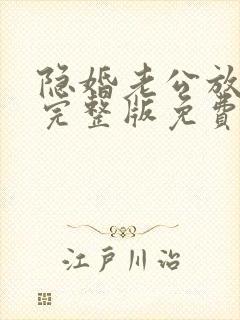 隐婚老公放
完整版免费
江户川治